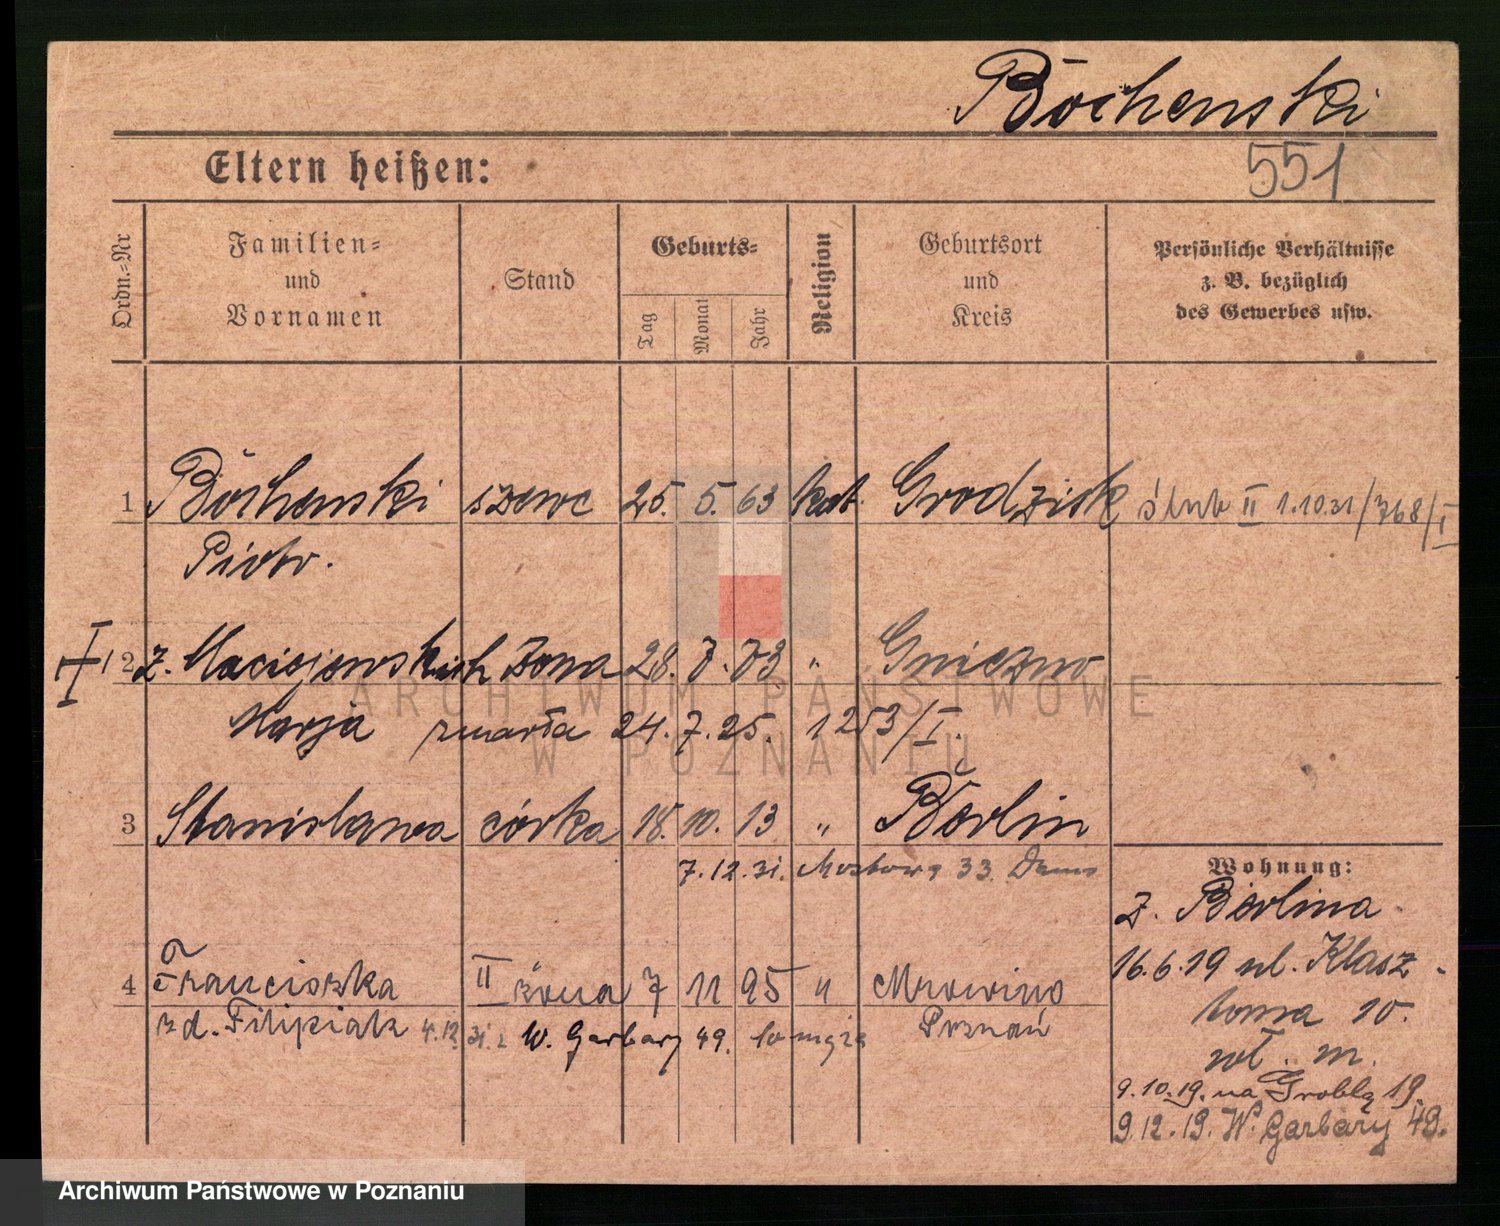 Böchenski
551
Eltern heißen:
Ordn.=Nr
Familien=
und
Vornamen
Stand
Geburts=
Tag
Monat
Jahr
Religion
Geburtsort
und
Kreis
Persönliche Verhältnisse
z. B. bezüglich
des Gewerbes usw.
1 Böchenski szewc 25. 5. 63 kat. Grodzisk ślub II 1.10.31/768/I
Piotr.
2 z. Maciejewskich żona 28. 7. 73 " Gniezno
Marja zmarła 24. 7. 25. 1253/I.
3 Stanisława córka 18. 10. 13 " Berlin
7.12.31. Mostowa 33.
Wohnung:
z. Berlina
16.6.19 ul. Klasz-
torna 10.
wł. m.
9.10.19. na Groblą 19.
9.12.19. W. Garbary 49.
4 Franciszka II żona 7 11 95 " Mrowino
zd. Filipiak 4.12. 31. z W. Garbary 49. Poznań
ARCHIWUM PAŃSTWOWE
W POZNANIU
Archiwum Państwowe w Poznaniu